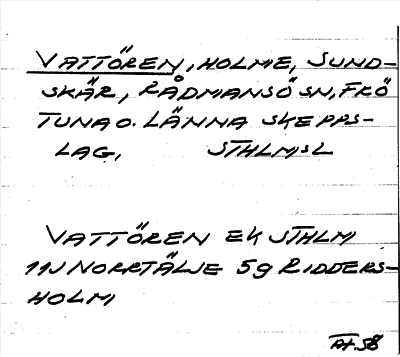 VATTÖREN, HOLME, SUND-
SKÄR, RÅDMANSÖ SN, FRÖ
TUNA O. LÄNNA SKEPPS-
LAG, STHLMSL
VATTÖREN EK STHLM
11J NORRTÄLJE 5g RIDDERS-
HOLM